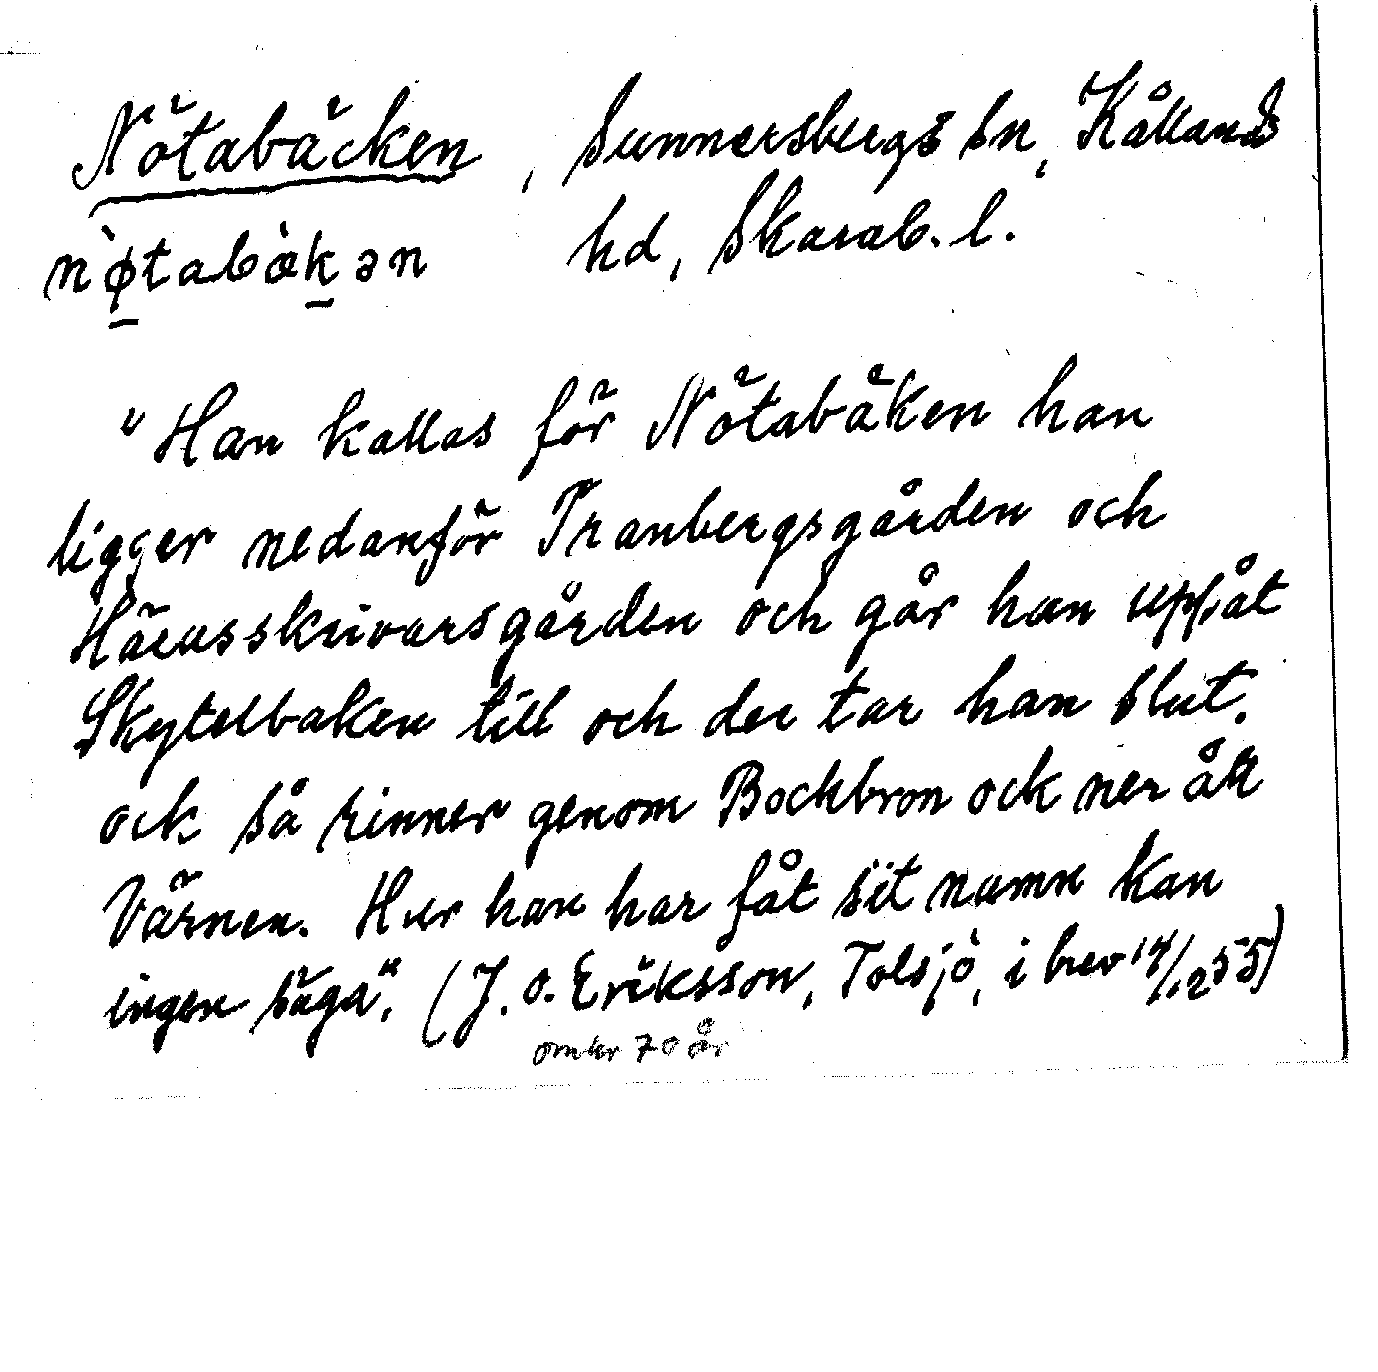 Nötabäcken, Sunnersbergs sn, Kållands
nø̀tabæ̀kən hd, Skarab. l.
"Han kallas för Nötabäken han
ligger nedanför Tranbergsgården och
Häcusskrivarsgården och går han uppåt
Skytelbaken till och der tar han slut.
ock så rinner genom Bockbron ock ner åt
Värnen. Hur han har fåt sit namn kan
ingen säga". (J. O. Eriksson, Tolsjö, i brev 14/12 55)
omkr 70 år